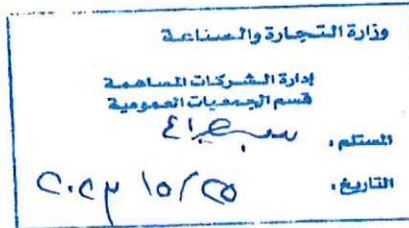 وزارة التجارة والصناعة
إدارة الشركات المساهمة
قسم الجمعيات العمومية
المستلم:
التاريخ: ٢٥/٥/٢٠٢٣